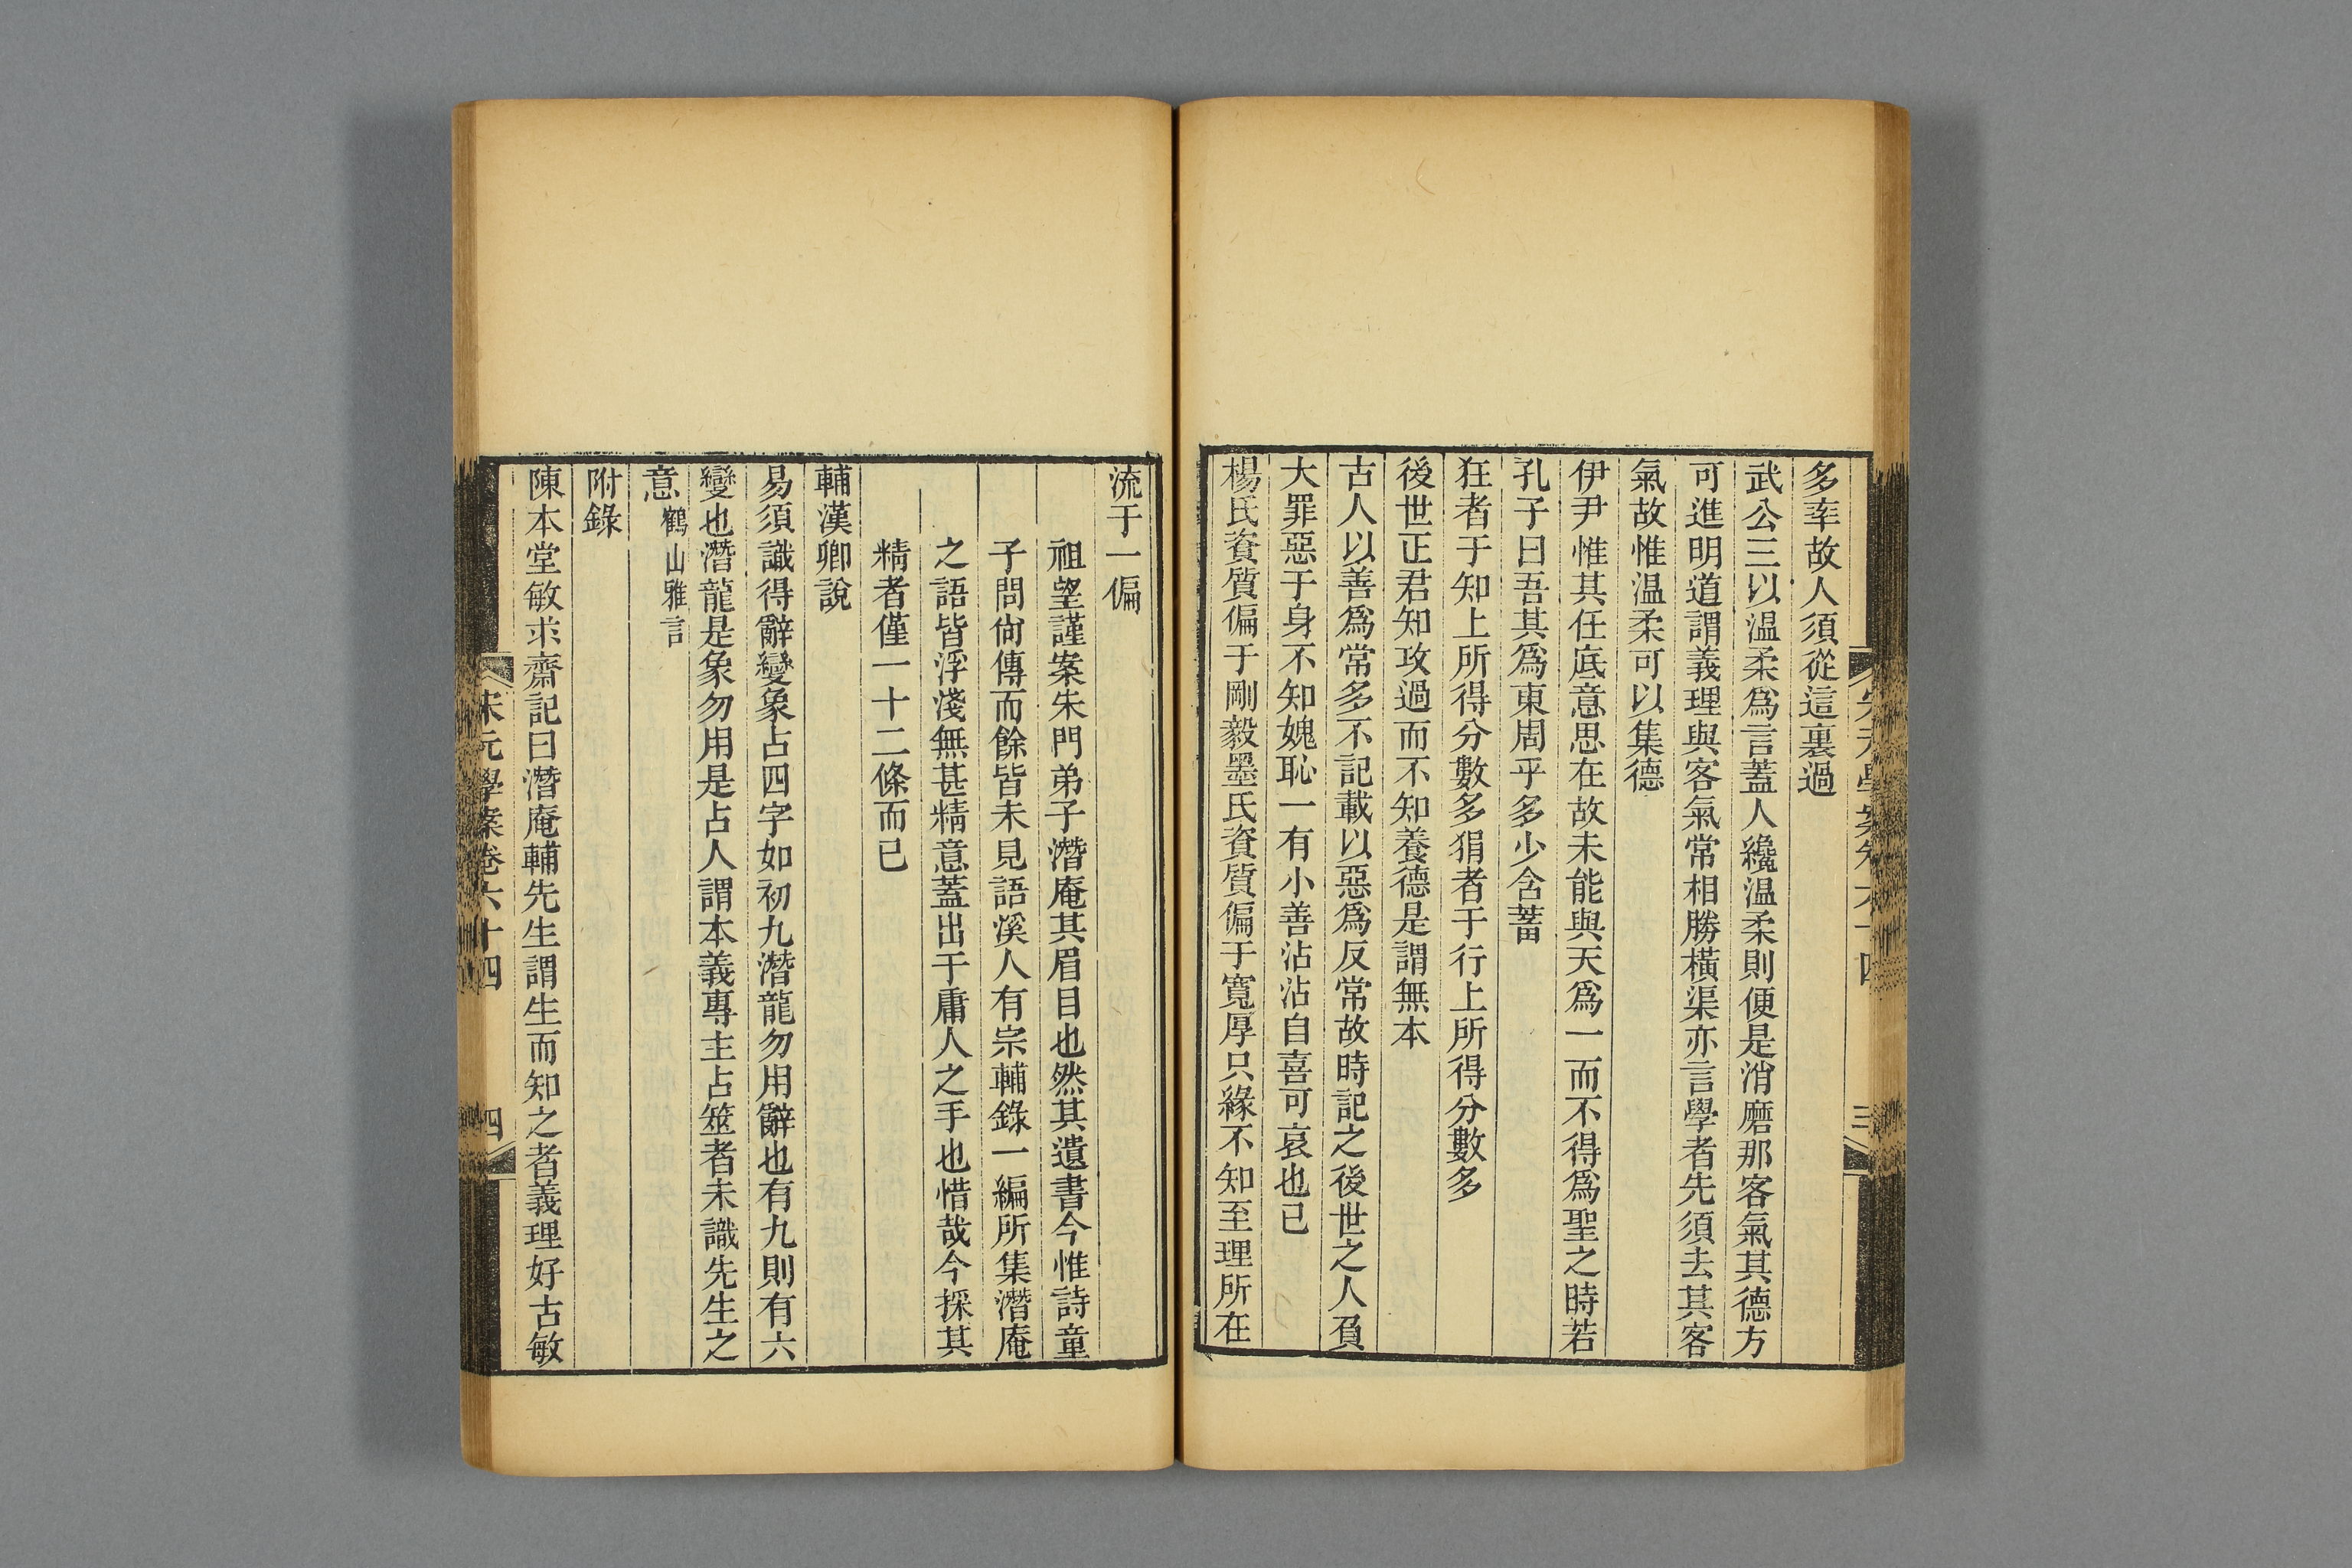 多牽故人須從這裏過
武公三以温柔爲言蓋人纔温柔則便是消磨那客氣其德方
可進明道謂義理與客氣常相勝横渠亦言學者先須去其客
氣故惟温柔可以集德
伊尹惟其任底意思在故未能與天爲一而不得爲聖之時若
孔子曰吾其爲東周乎多少含蓄
狂者于知上所得分數多狷者于行上所得分數多
後世正君知攻過而不知養德是謂無本
古人以善爲常多不記載以惡爲反常故時記之後世之人負
大罪惡于身不知媿恥一有小善沾沾自喜可哀也已
楊氏資質偏于剛毅墨氏資質偏于寬厚只緣不知至理所在
三
流于一偏
祖望謹案朱門弟子潛庵其眉目也然其遺書今惟詩童
子問尙傳而餘皆未見語溪人有宗輔錄一編所集潛庵
之語皆浮淺無甚精意蓋出于庸人之手也惜哉今採其
精者僅一十二條而已
輔漢卿說
易須識得辭變象占四字如初九潛龍勿用辭也有九則有六
變也潛龍是象勿用是占人謂本義專主占筮者未識先生之
意鶴山雅言
附錄
陳本堂敏求齋記曰潛庵輔先生謂生而知之者義理好古敏
宋元學案卷六十四
四